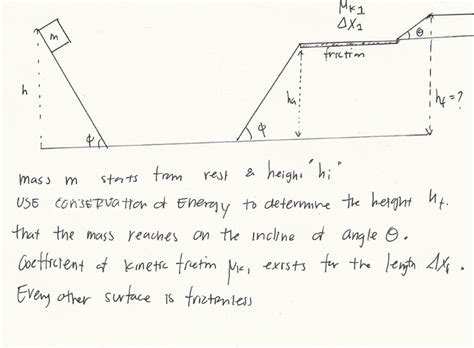 μK1
ΔX1
m
θ
friction
h
ha
hf=?
φ
φ
mass m starts from rest @ height "hi"
USE CONSERVATION of Energy to determine the height hf.
that the mass reaches on the incline of angle θ.
Coefficient of kinetic friction μK1 exists for the length ΔX1.
Every other surface is frictionless